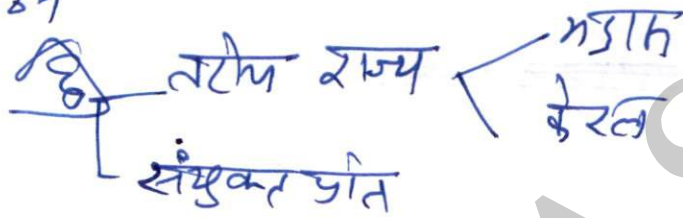 तटीय राज्य
मद्रास
केरल
संयुक्त प्रांत